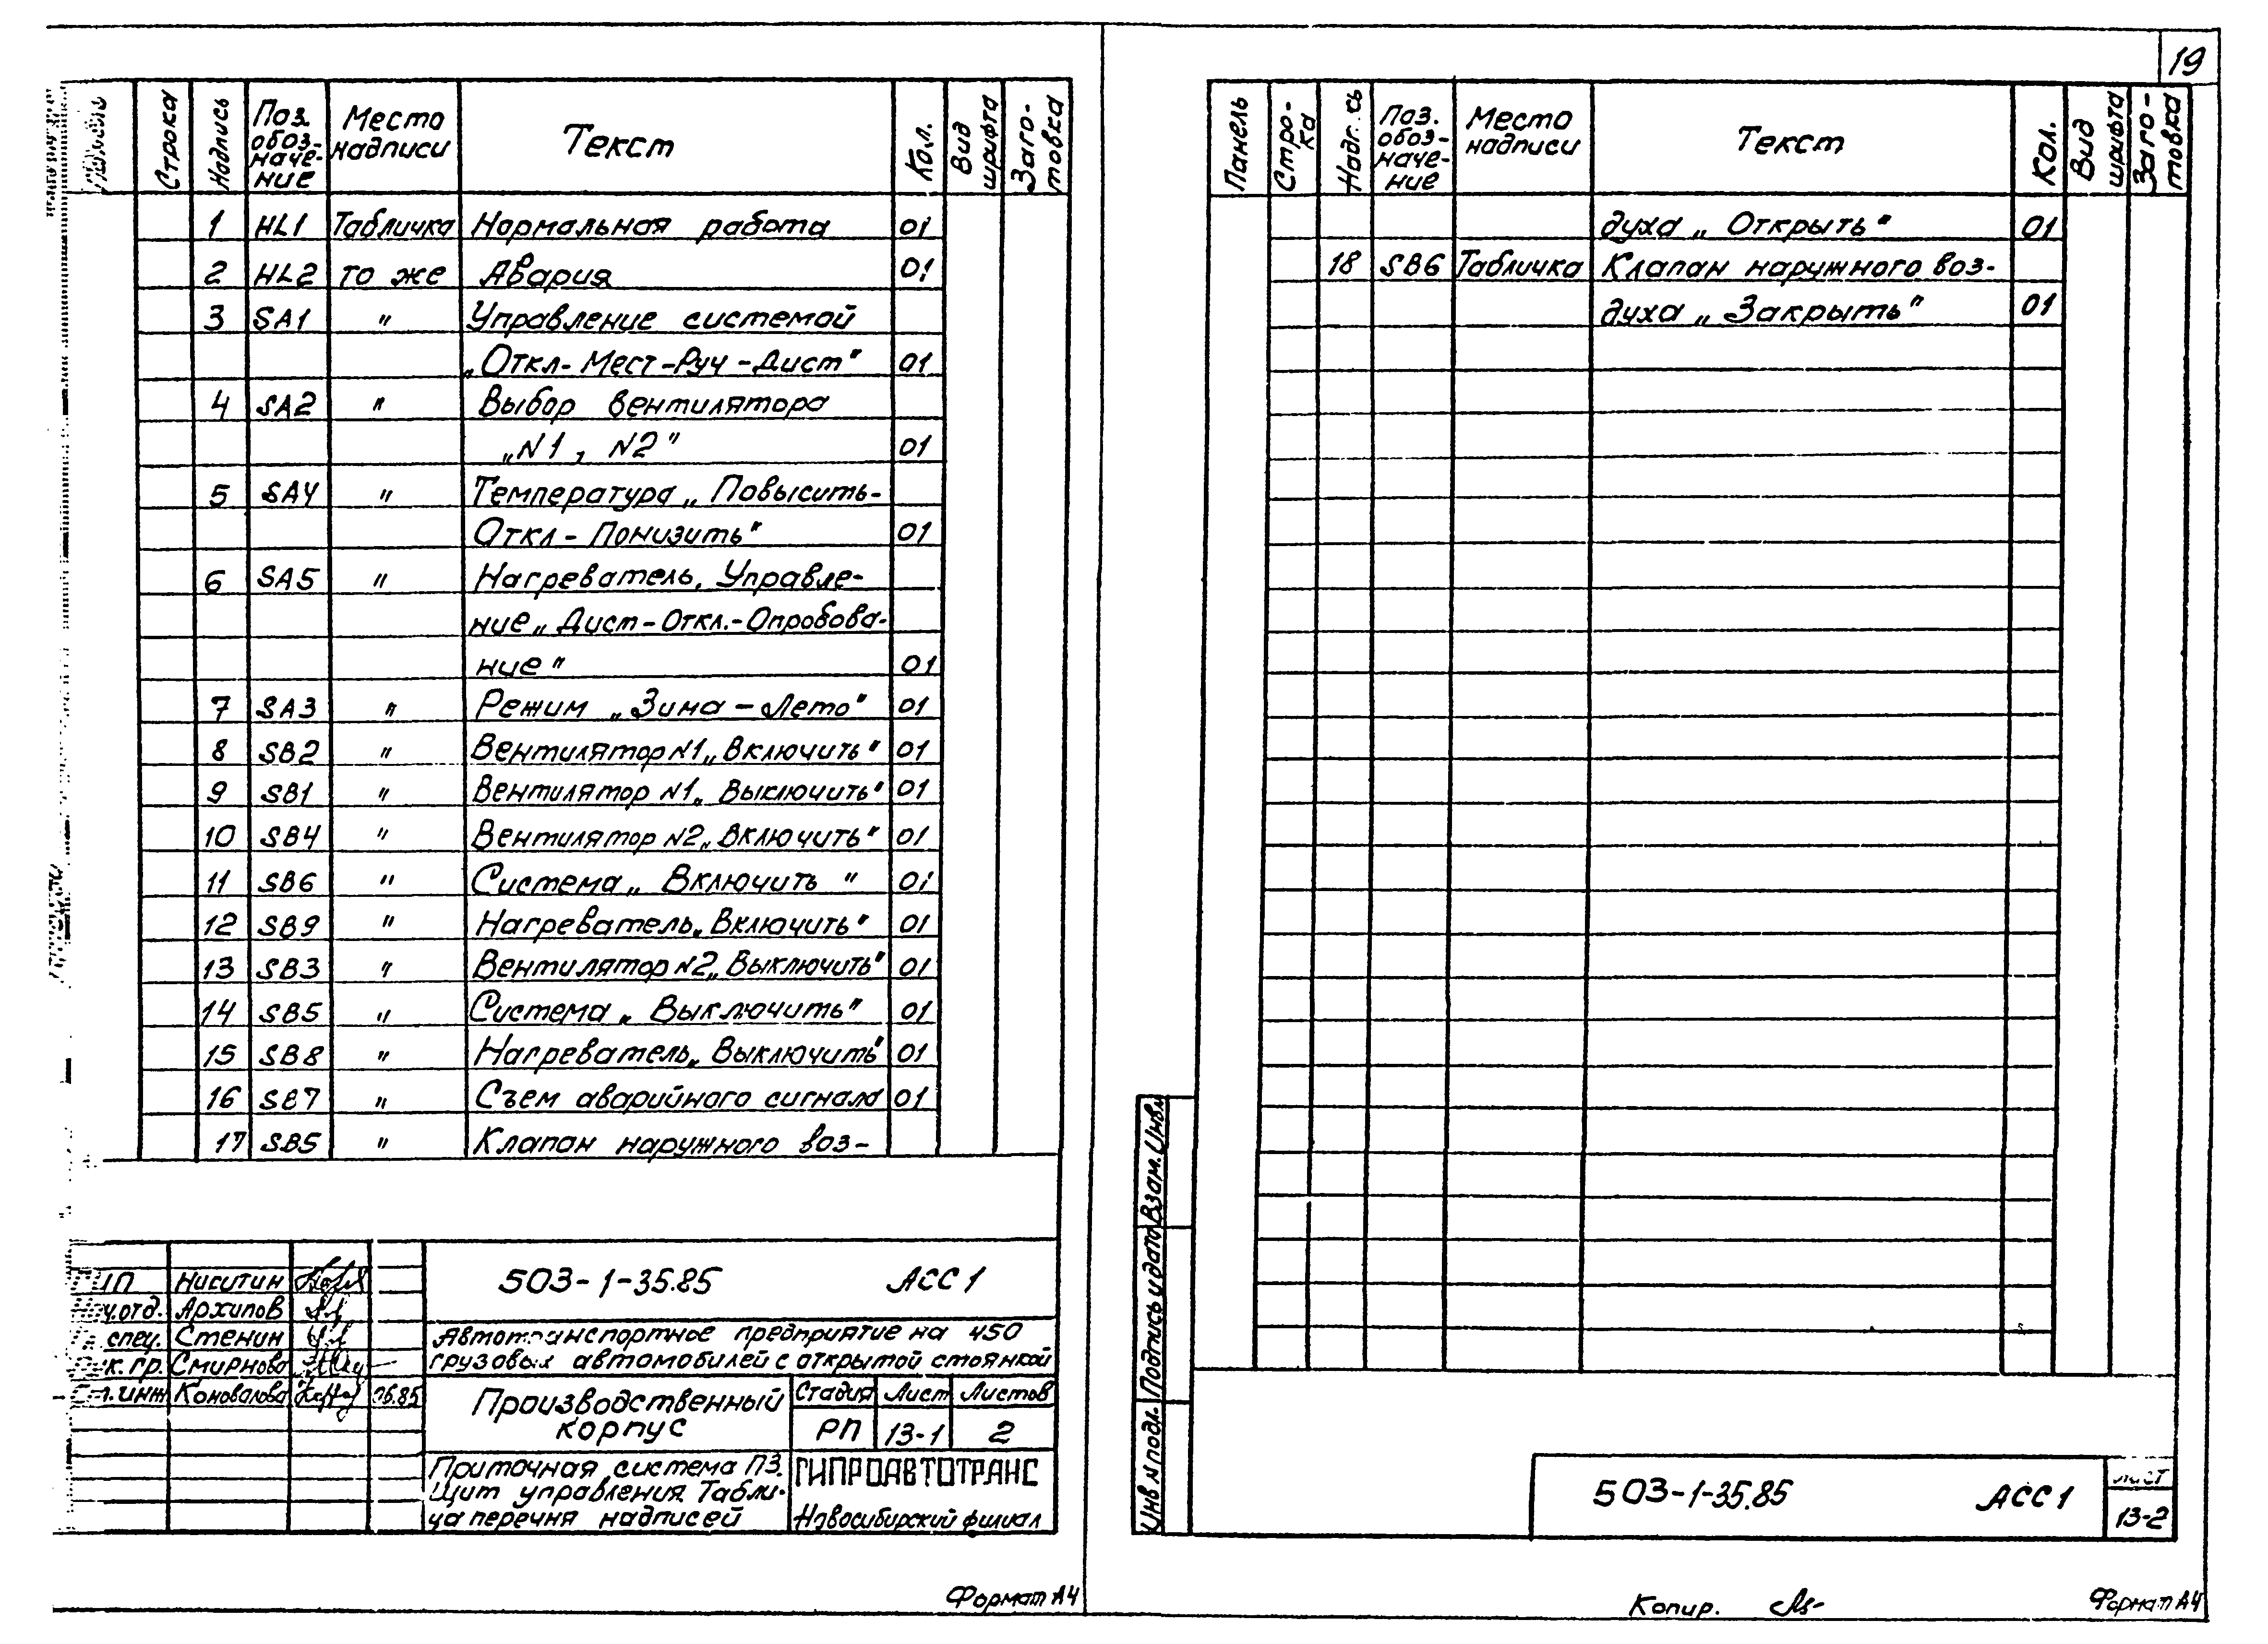 19
Строка Надпись Поз. обоз-наче-ние Место надписи Текст Кол. Вид шрифта Заго-товка
1 HL1 Табличка Нормальная работа 01
2 HL2 то же Авария 01
3 SA1 " Управление системой
„Откл-Мест-Руч-Дист" 01
4 SA2 " Выбор вентилятора
„N1, N2" 01
5 SA4 " Температура „Повысить-
Откл-Понизить" 01
6 SA5 " Нагреватель. Управле-
ние „Дист-Откл.-Опробова-
ние" 01
7 SA3 " Режим „Зима-Лето" 01
8 SB2 " Вентилятор N1 „Включить" 01
9 SB1 " Вентилятор N1 „Выключить" 01
10 SB4 " Вентилятор N2 „Включить" 01
11 SB6 " Система „Включить" 01
12 SB9 " Нагреватель „Включить" 01
13 SB3 " Вентилятор N2 „Выключить" 01
14 SB5 " Система „Выключить" 01
15 SB8 " Нагреватель „Выключить" 01
16 SB7 " Съем аварийного сигнала 01
17 SB5 " Клапан наружного воз-
ГИП Никитин
Нач.отд. Архипов
Гл. спец. Стенин
Рук. гр. Смирнова
Ст. инж Коновалова 06.85
503-1-35.85 АСС1
Автотранспортное предприятие на 450
грузовых автомобилей с открытой стоянкой
Производственный
корпус
Стадия Лист Листов
РП 13-1 2
Приточная система П3.
Щит управления. Табли-
ца перечня надписей
ГИПРОАВТОТРАНС
Новосибирский филиал
Формат А4
Панель Стро-ка Надпись Поз. обоз-наче-ние Место надписи Текст Кол. Вид шрифта Заго-товка
духа „Открыть" 01
18 SB6 Табличка Клапан наружного воз-
духа „Закрыть" 01
Взам. Инв.
Подпись и дата
Инв N подл.
503-1-35.85 АСС1
лист
13-2
Копир.
Формат А4